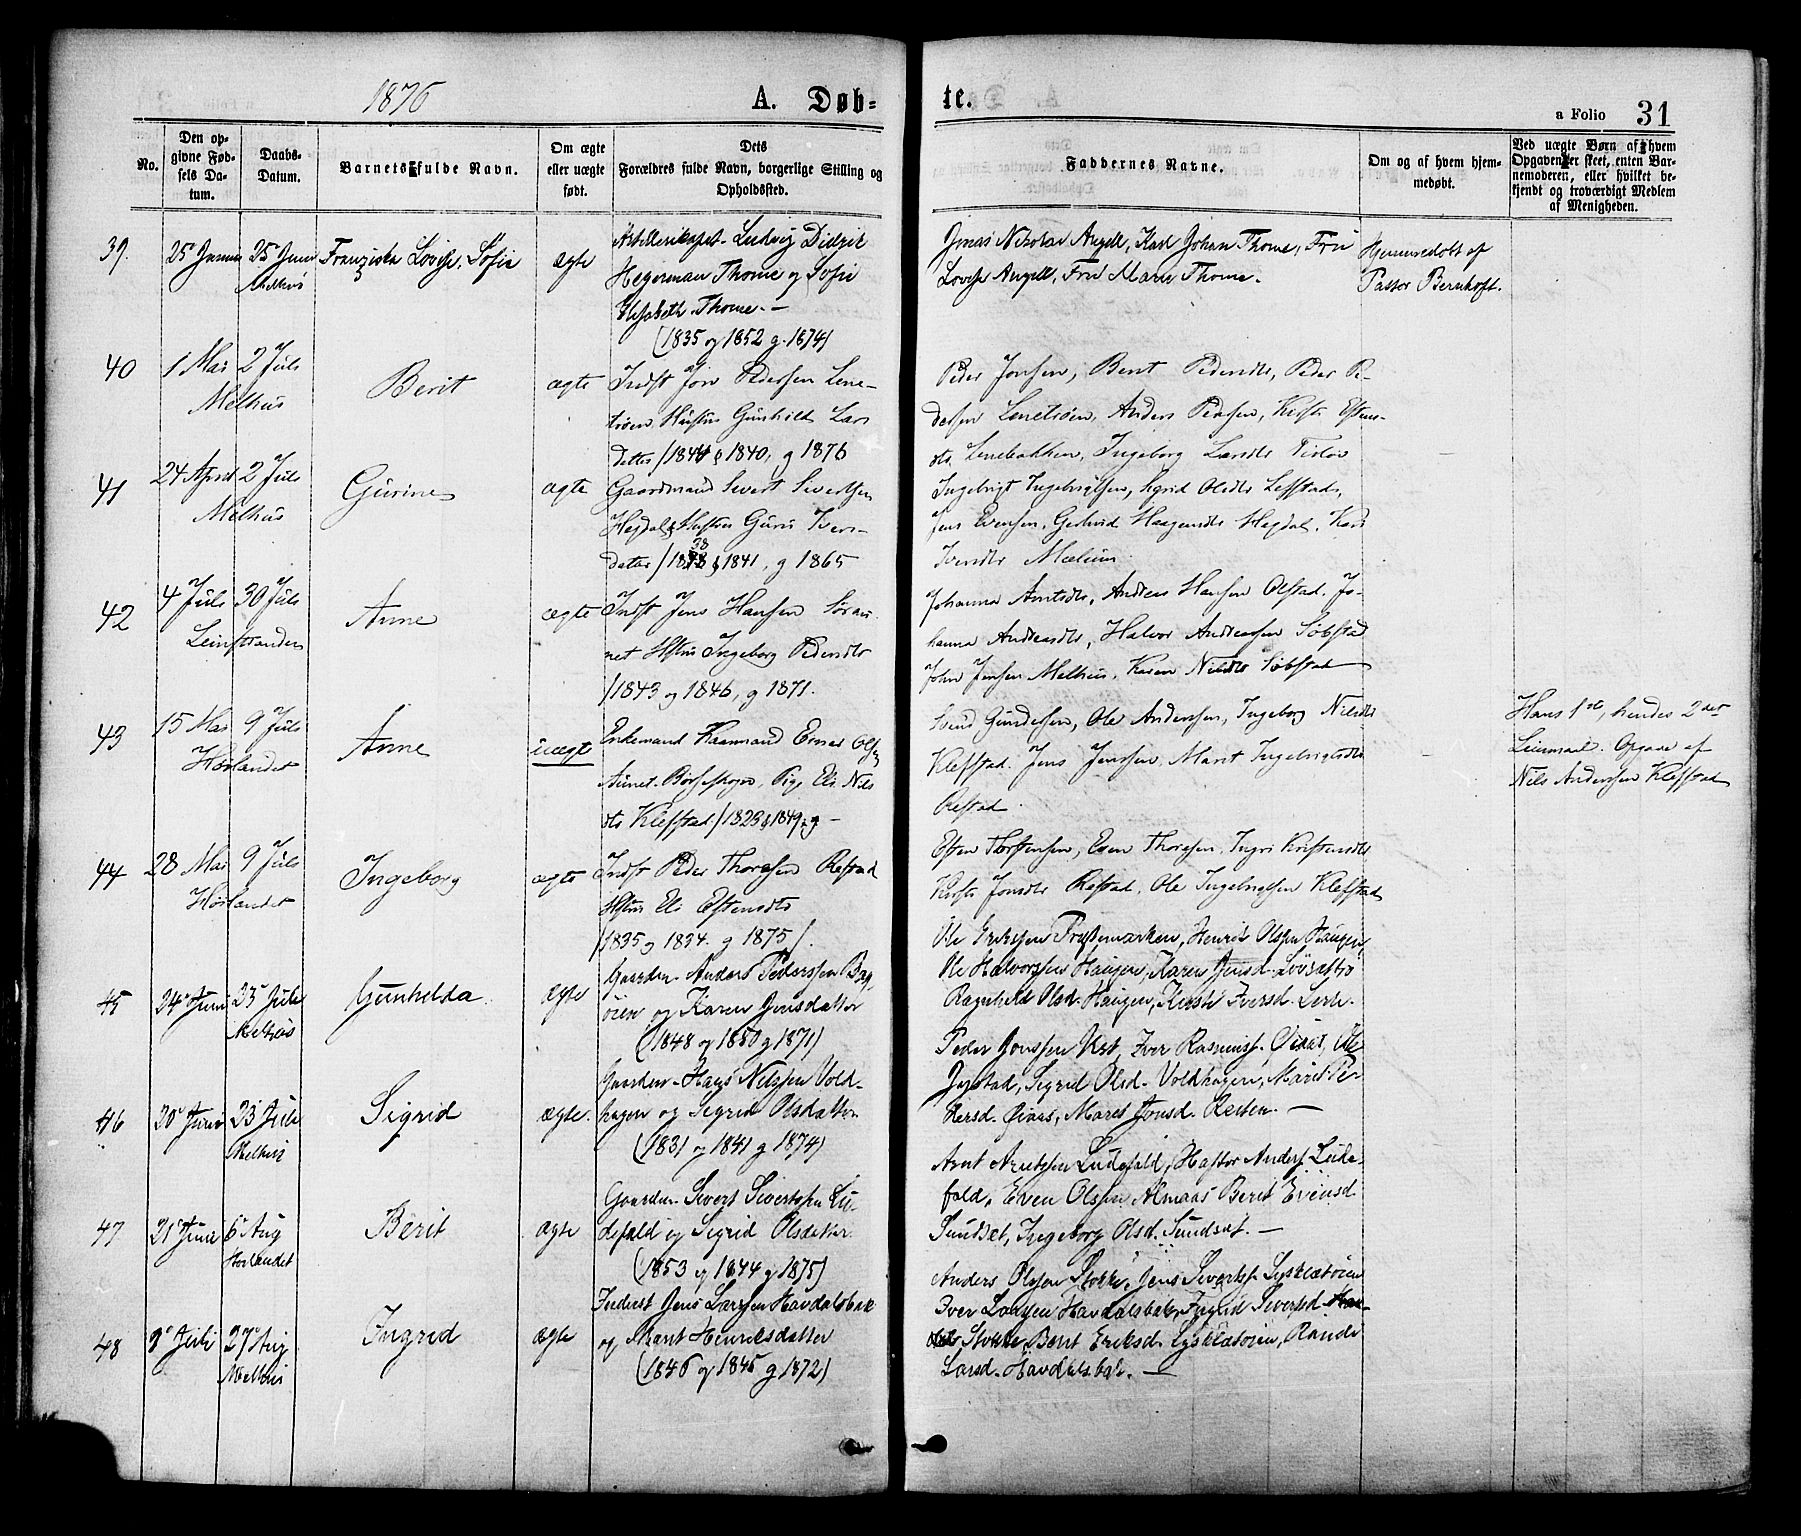 1876
A. Døb-
te.
a Folio 31
No.
Den op-
givne Fød-
sels Da-
tum.
Daabs-
Datum.
Barnets fulde Navn.
Om ægte
eller uægte
født.
Dets
Forældres fulde Navn, borgerlige Stilling og
Opholdssted.
Faddernes Navne.
Om og af hvem hjem-
medøbt.
Ved uægte Børn af hvem
Opgaven er skeet, enten Bar-
nemoderen, eller hvilket be-
kjendt og troværdigt Medlem
af Menigheden.
39.
25 Januar
25 Juni
Melhus
Franziska Lovise Sofie
ægte
Artillerikapt. Ludvig Didrik
Hegerman Thome og Sofie
Elisabeth Thome. —
(1835 og 1852 g. 1874)
Jonas Nikolai Angell, Karl Johan Thome, Fru
Lovise Angell, Fru Maren Thome.
Hjemmedøbt af
Pastor Bernhoft.
40
1 Mai
2 Juli
Melhus
Berit
ægte
Indst Jon Pedersen Lene-
trøen Hustru Gunhild Lars
datter /1844 & 1840, g 1876
Peder Jonsen, Berit Pedersdtr, Peder Pe-
dersen Lenetrøen, Anders Pedersen, Kirsti Estens-
dtr Lenebakken, Ingeborg Larsdtr
41
24 April
2 Juli
Melhus
Gurine
ægte
Gaardmand Sivert Sivertsen
Hegdal & Hustru Guru Ivers-
datter /1838 & 1841, g 1865
Ingebrigt Ingebrigtsen, Sigrid Olsdtr Lefstad,
Jens Evensen, Gertrud Haagensdtr Hegdal, Kari
Iversdtr Mælum
42
4 Juli
30 Juli
Leinstranden
Anne
ægte
Indst Jens Hansen Søran-
net Hstru Ingeborg Pedersdtr
/1843 og 1846, g 1871.
Johanna Arntsdtr, Andreas Hansen Olstad, Jo-
hanna Andreasdtr, Halvor Andreassen Søbstad
John Jensen Melhus, Karen Nilsdtr Søbstad
43
15 Mai
9 Juli
Høilandet
Anne
uægte
Enkemand Kaarmand Einar Olsen
Aunet Børseskogn, Pige Eli Nils
dtr Klefstad /1823 & 1849, g —
Svend Gundersen, Ole Anderssen, Ingeborg Nilsdtr
Klefstad. Jens Jenssen, Marit Ingebrigtsdtr
Refstad.
Hans 1ste, hendes 2det
Leiermaal. Opgave af
Nils Anderssen Klefstad
44
28 Mai
9 Juli
Høilandet
Ingeborg
ægte
Indst Peder Thoresen Refstad
Hstru Eli Estensdtr
/1835 og 1834. g 1875/.
Esten Thorstensen, Even Thoresen, Ingri Kristensdtr
Kirsti Jonsdtr Refstad, Ole Ingebrigtsen Klefstad
45
24 Juni
23 Juli
Melhus
Gunhilda
ægte
Gaardbr. Anders Pedersen Bag-
øien og Karen Jensdatter
(1848 og 1850 g 1871)
Ole Eriksen Præstemarken, Henrik Olsen Haugen,
Ole Halvorsen Haugen, Karen Jensd. Løvsættrø
Ragnhild Olsd. Haugen, Kirsti Iversd. Lerli.
46
20 Juni
23 Juli
Melhus
Sigrid
ægte.
Gaardbr. Hans Nilssen Vold-
hagen og Sigrid Olsdatter
(1831 og 1841 g 1874)
Peder Jonssen Ust, Iver Rasmuss. Øiaas, Ole
Jystad, Sigrid Olsd. Voldhagen, Marit Pe-
dersd. Øiaas, Maret Jonsd. Resten. —
47
21 Juni
6 Aug
Høilandet
Berit
ægte
Gaardbr. Sivert Sivertssen Lu-
defald og Sigrid Olsdatter.
(1853 og 1844 g 1875)
Arnt Arntssen Ludefald, Hastor Anders. Lude-
fald, Even Olssen Almaas Berit Evensd.
Sundset, Ingeborg Olsd. Sundset. —
48
9 Juli
27 Aug
Melhus
Ingrid
ægte
Inderst Jens Larssen Havdalsbak
og Marit Henriksdatter
(1846 og 1845 g 1872)
Anders Olssen Stokke, Jens Sivertss. Lysklætøien
Iver Larssen Havdalsbak, Ingrid Sivertsd.
Stokke, Berit Eriksd. Lysklætøien, Randi
Larsd. Havdalsbak. —